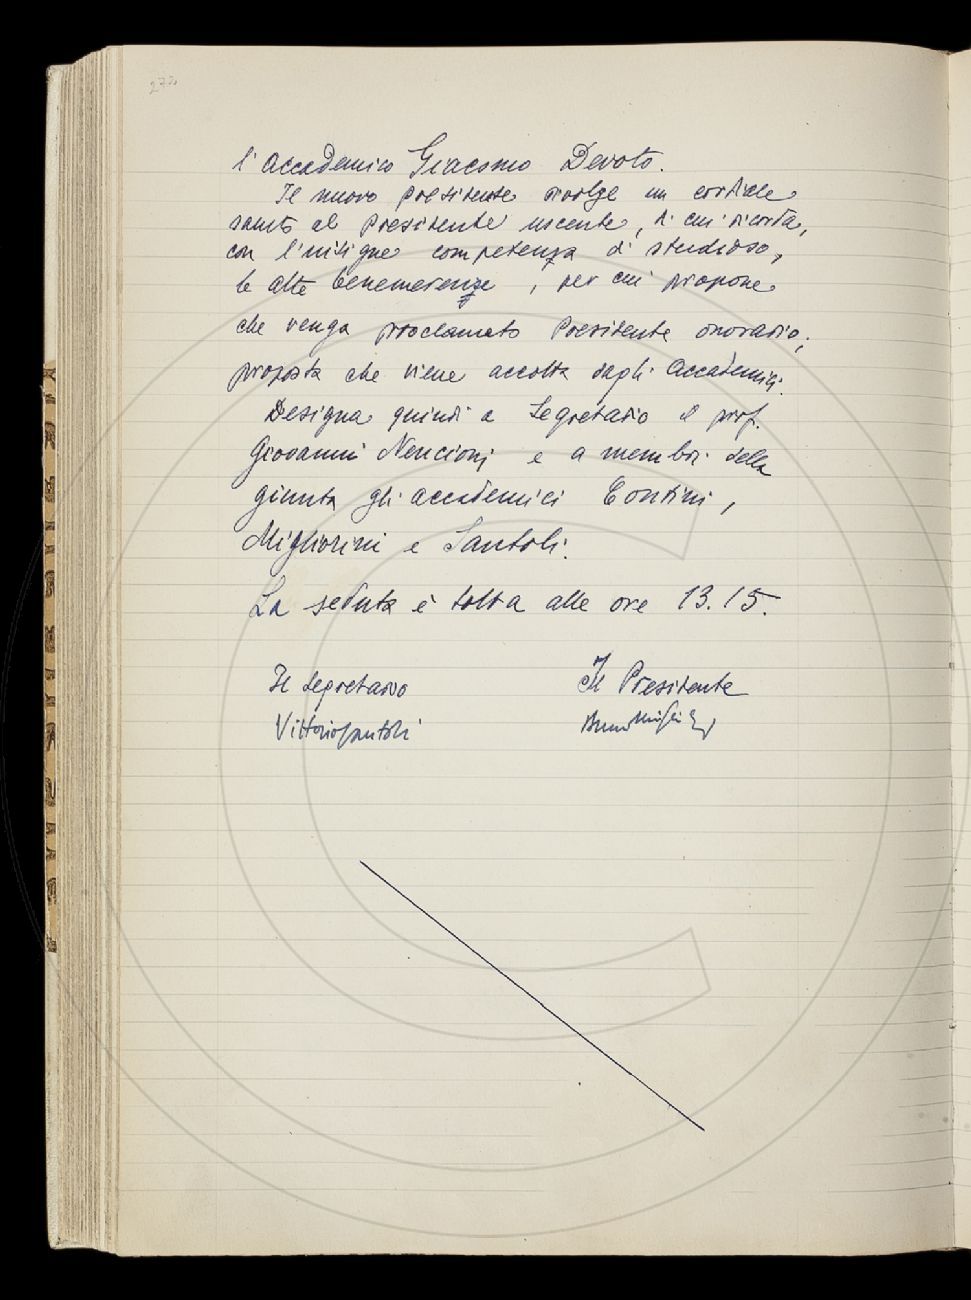 272
l'accademico Giacomo Devoto.
Il nuovo presidente rivolge un cordiale
saluto al Presidente uscente, di cui ricorda,
con l'insigne competenza di studioso,
le alte benemerenze, per cui propone
che venga proclamato Presidente onorario;
proposta che viene accolta dagli Accademici.
Designa quindi a Segretario il prof.
Giovanni Nencioni e a membri della
giunta gli accademici Contini,
Migliorini e Santoli.
La seduta è tolta alle ore 13.15.
Il Segretario
Il Presidente
Vittorio Santoli
Bruno Migliorini